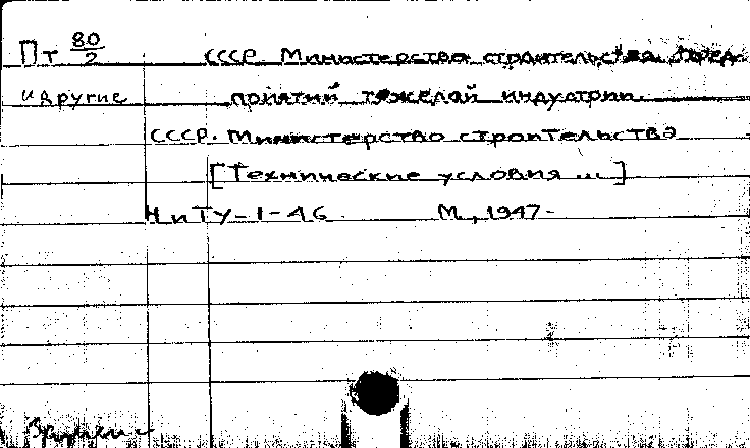 Пт 80/2 СССР. Министерство строительства пред-
и другие приятий тяжелой индустрии.
СССР. Министерство строительства
[Технические условия ...]
Н и ТУ-1-46 М., 1947-